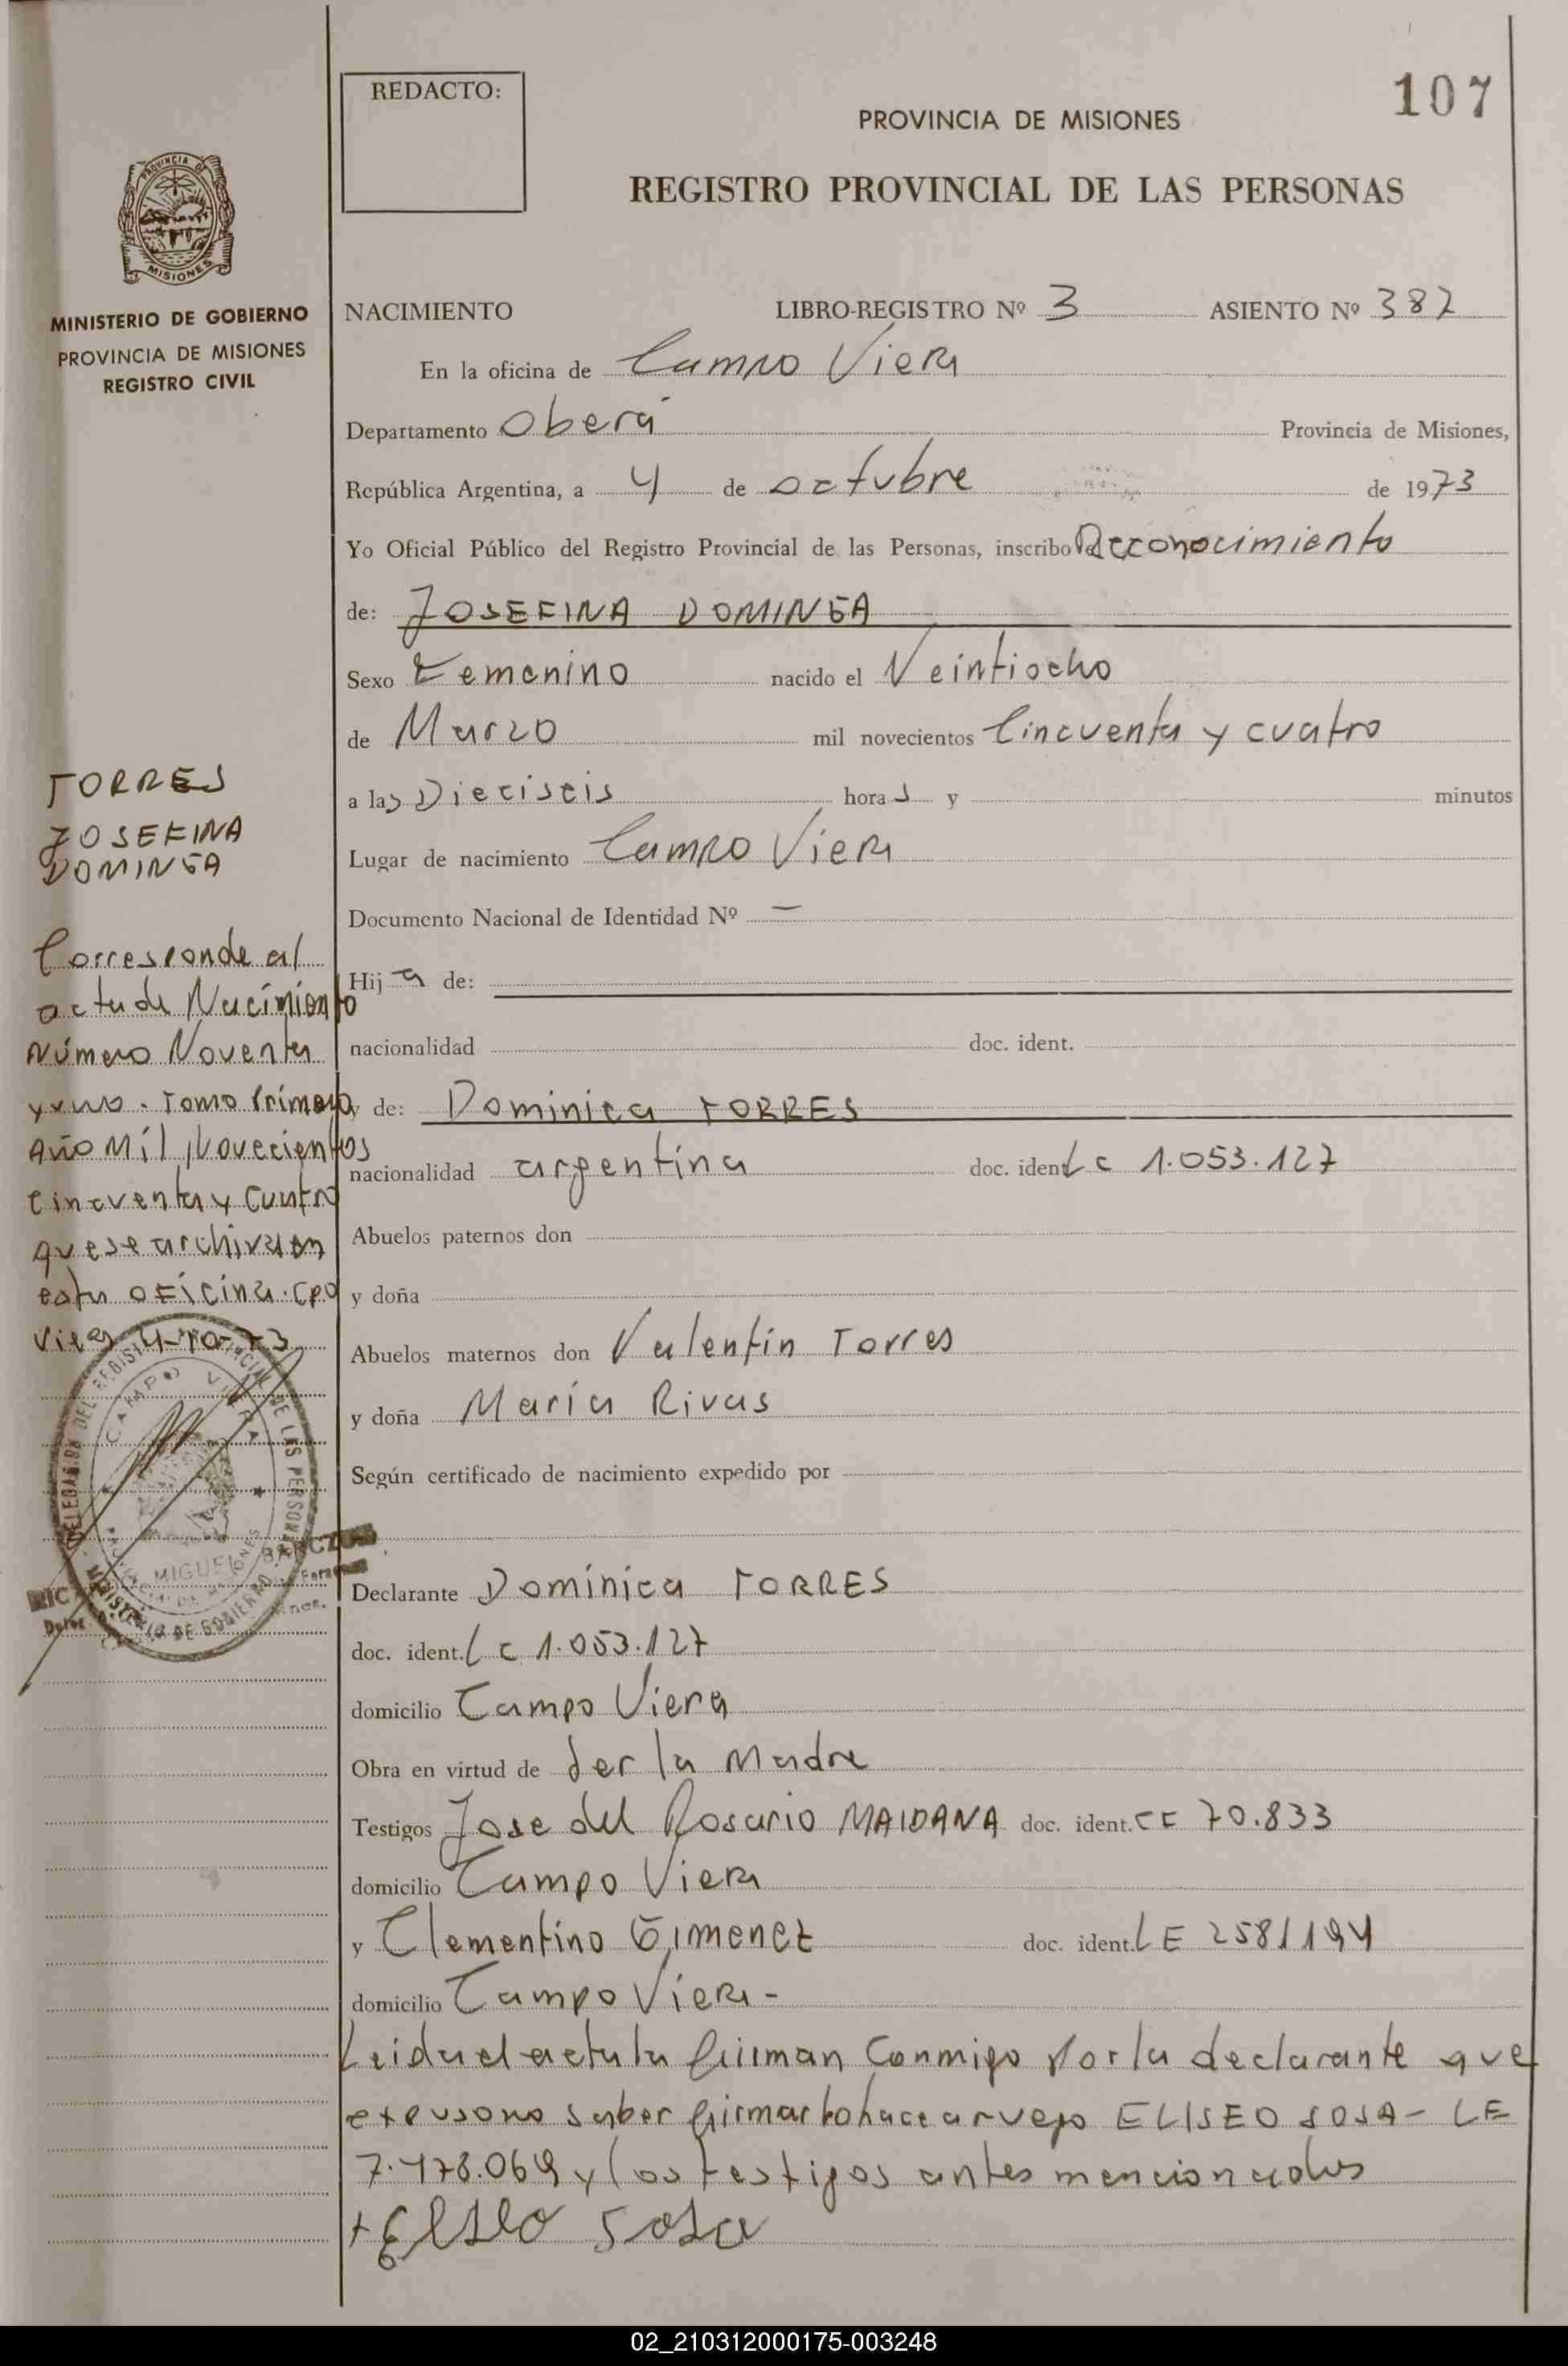 REDACTO:
107
PROVINCIA DE MISIONES
REGISTRO PROVINCIAL DE LAS PERSONAS
PROVINCIA DE
MISIONES
MINISTERIO DE GOBIERNO
PROVINCIA DE MISIONES
REGISTRO CIVIL
NACIMIENTO LIBRO-REGISTRO Nº 3 ASIENTO Nº 382
En la oficina de Campo Viera
Departamento Oberá Provincia de Misiones,
República Argentina, a 4 de octubre de 1973
Yo Oficial Público del Registro Provincial de las Personas, inscribo Reconocimiento
de: JOSEFINA DOMINGA
Sexo Femenino nacido el Veintiocho
de Marzo mil novecientos Cincuenta y cuatro
a las Dieciseis horas y minutos
Lugar de nacimiento Campo Viera
Documento Nacional de Identidad Nº —
Hija de:
nacionalidad doc. ident.
y de: Dominica TORRES
nacionalidad argentina doc. ident LC 1.053.127
Abuelos paternos don
y doña
Abuelos maternos don Valentín Torres
y doña María Rivas
Según certificado de nacimiento expedido por
Declarante Dominica TORRES
doc. ident. LC 1.053.127
domicilio Campo Viera
Obra en virtud de ser la Madre
Testigos Jose del Rosario MAIDANA doc. ident. CE 70.833
domicilio Campo Viera
y Clementino Gimenez doc. ident. LE 2581194
domicilio Campo Viera -
Leida el acta la firman Conmigo por la declarante que
expuso no saber firmar lo hace a ruego ELISEO SOSA - LE
7.478.069 y los testigos antes mencionados
+ Eliseo Sosa
TORRES
JOSEFINA
DOMINGA
Corresponde al
acta de Nacimiento
Número Noventa
y uno. Tomo Primero
Año Mil Novecientos
Cincuenta y Cuatro
que se archiva en
esta oficina. Cpo
Viera 4-10-73
DELEGACION DEL REGISTRO PROVINCIAL DE LAS PERSONAS
CAMPO VIERA
PROVINCIA DE MISIONES
MINISTERIO DE GOBIERNO
MIGUEL
02_210312000175-003248